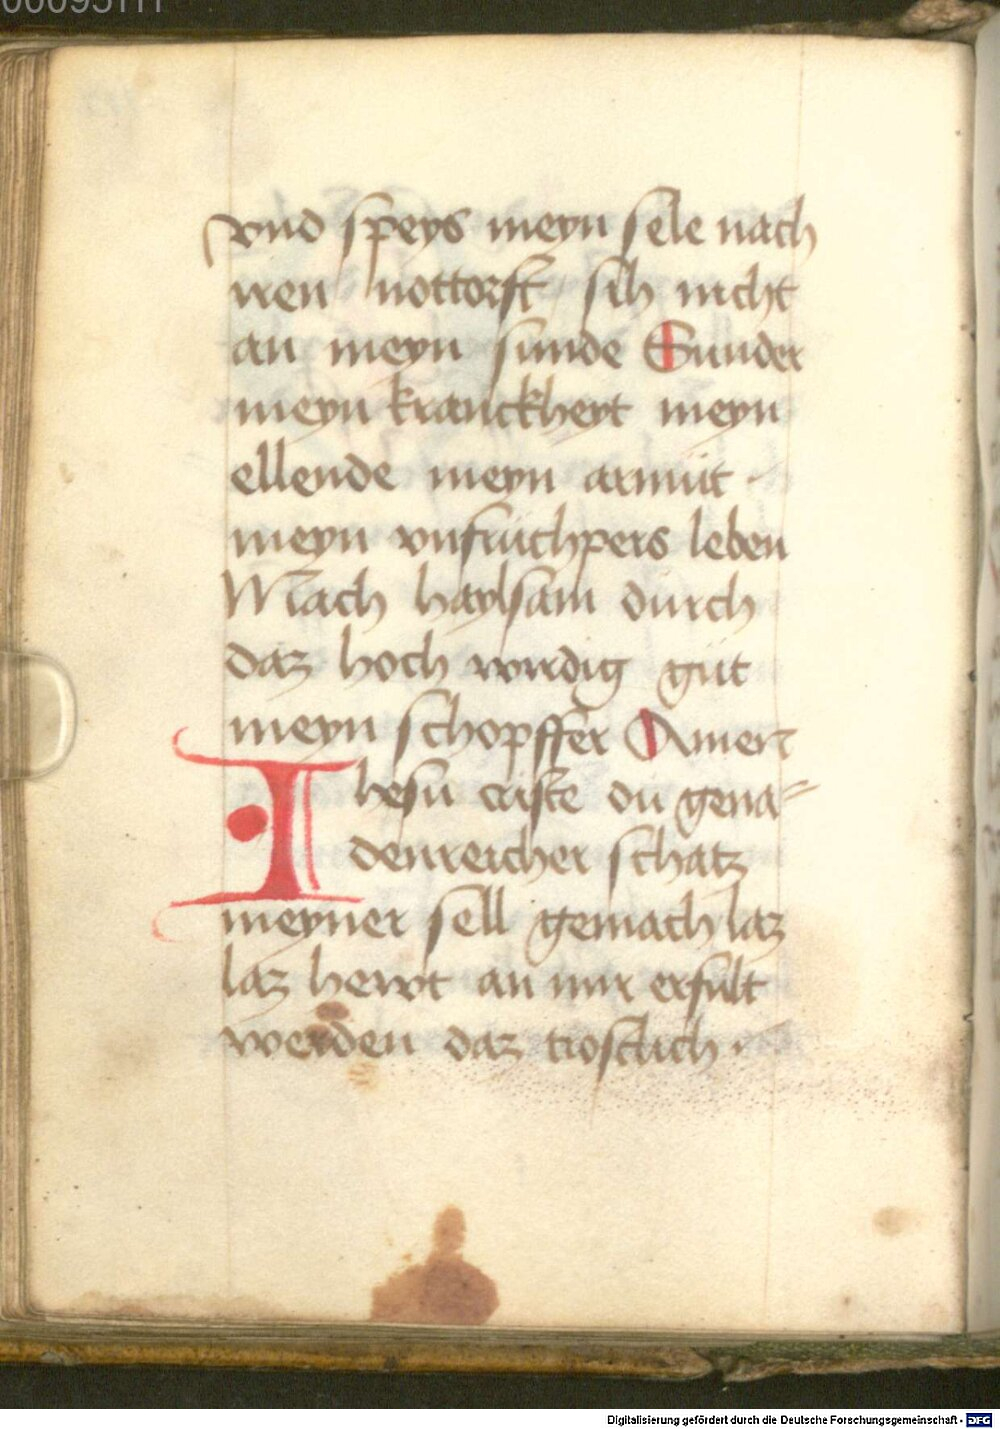 vnd speys meyn sele nach
iren nottorft sih nicht
an meyn sunde Sunder
meyn kranckheyt meyn
ellende meyn armut ·
meyn vnfruchpers leben
Mach haylsam durch
daz hoch wirdig gut
meyn schopffer Amen
Ihesu criste du gena=
denreicher schatz
meyner sell gemach laz
laz hewt an mir erfult
werden daz trostlich ·
Digitalisierung gefördert durch die Deutsche Forschungsgemeinschaft - DFG